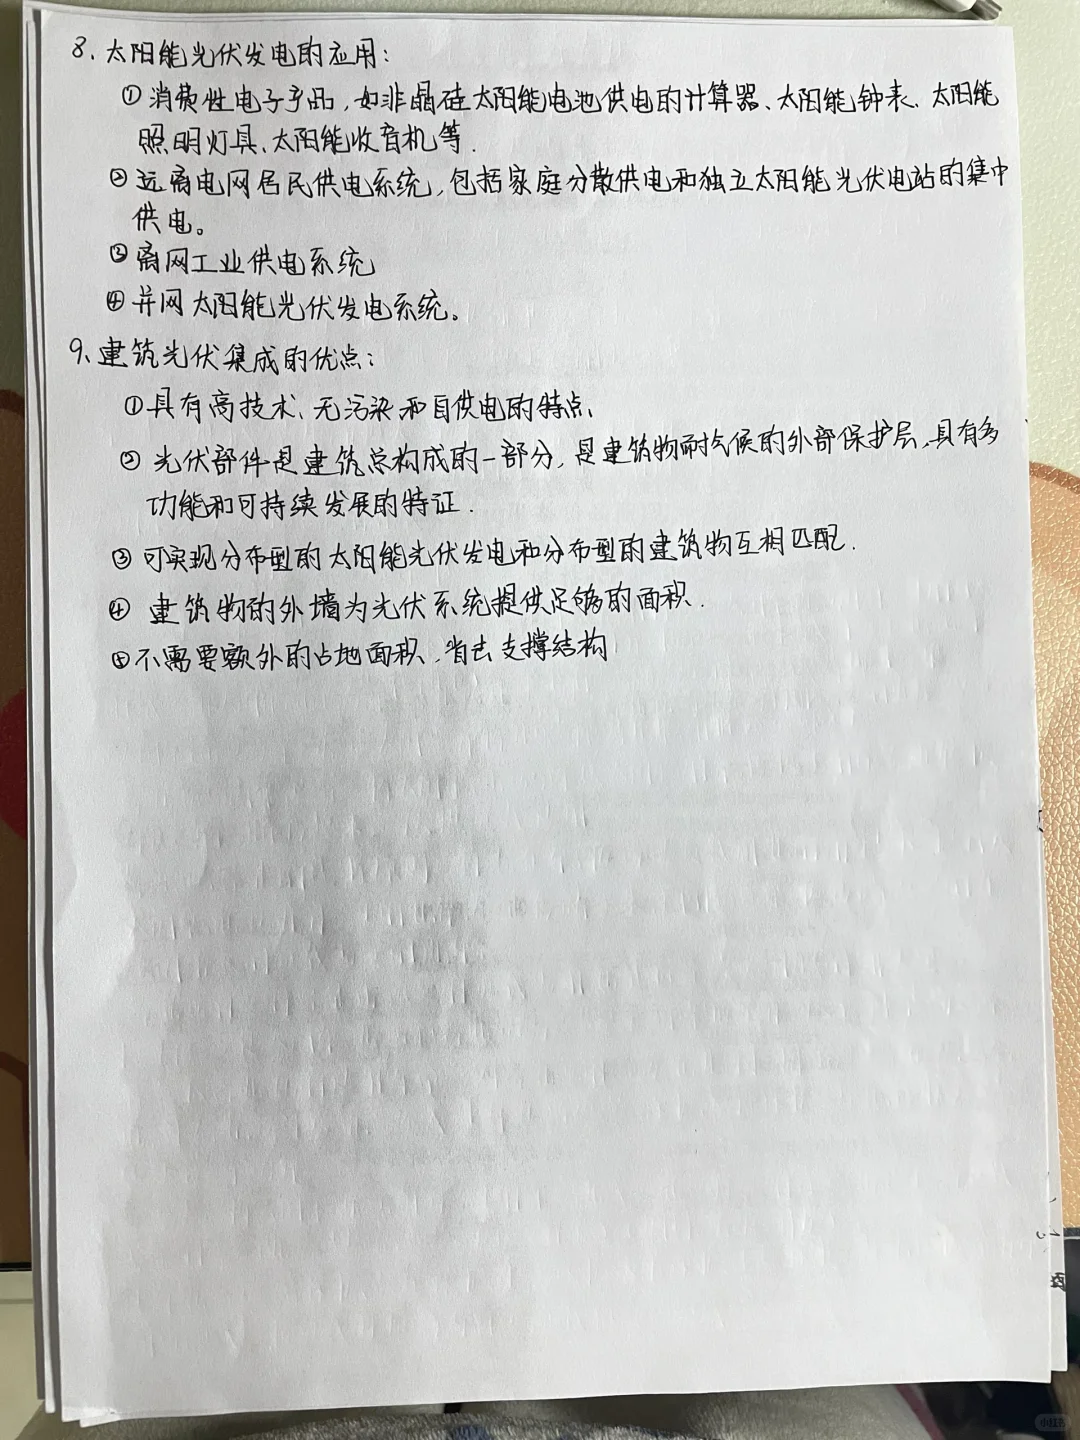 8、太阳能光伏发电的应用：
①消费性电子产品，如非晶硅太阳能电池供电的计算器、太阳能钟表、太阳能
照明灯具、太阳能收音机等.
②远离电网居民供电系统，包括家庭分散供电和独立太阳能光伏电站的集中
供电。
③离网工业供电系统
④并网太阳能光伏发电系统。
9、建筑光伏集成的优点：
①具有高技术、无污染和自供电的特点、
②光伏部件是建筑总构成的一部分，是建筑物耐气候的外部保护层，具有多
功能和可持续发展的特征.
③可实现分布型的太阳能光伏发电和分布型的建筑物互相匹配.
④建筑物的外墙为光伏系统提供足够的面积.
⑤不需要额外的占地面积，省去支撑结构
小红书